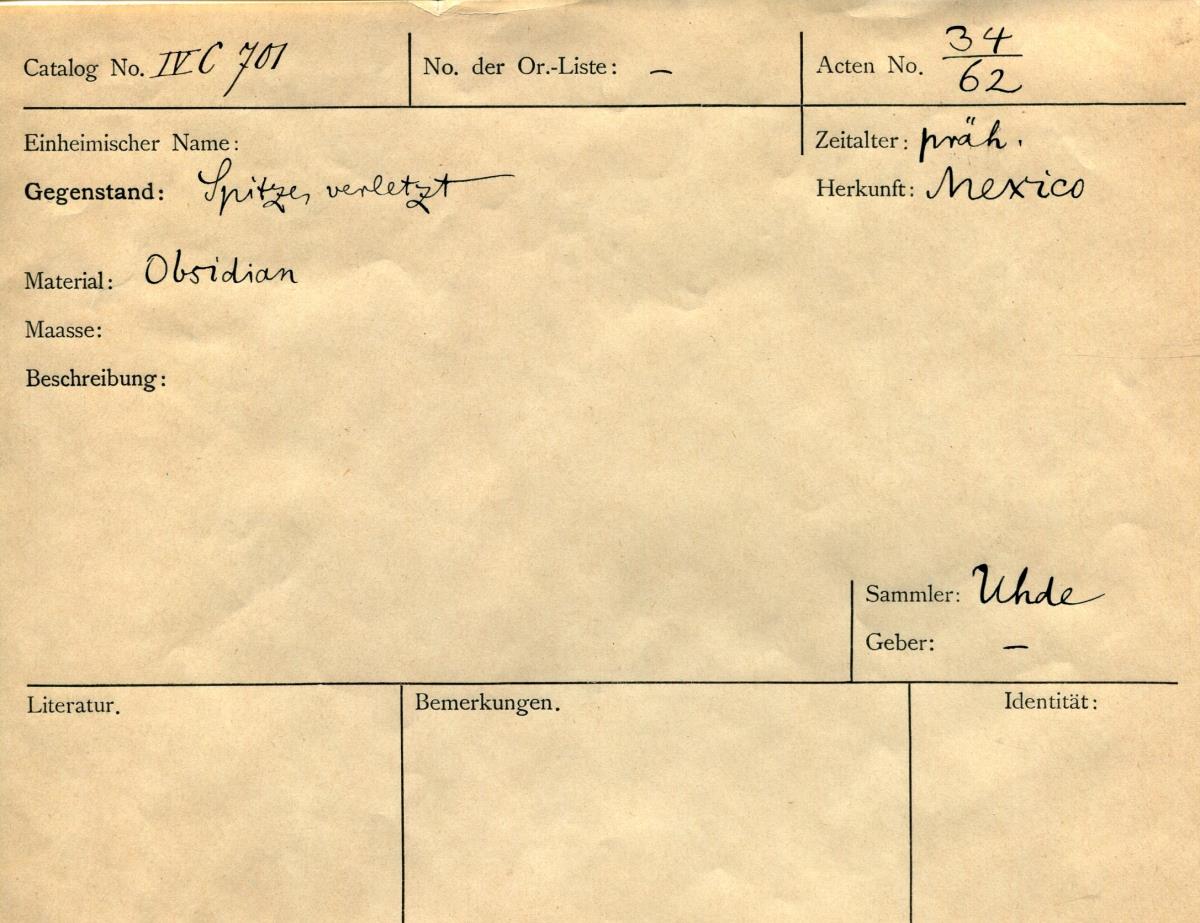 Catalog No. IV C 701 No. der Or.-Liste: – Acten No. 34/62
Einheimischer Name: Zeitalter: präh.
Gegenstand: Spitze, verletzt Herkunft: Mexico
Material: Obsidian
Maasse:
Beschreibung:
Sammler: Uhde
Geber: –
Literatur. Bemerkungen. Identität: